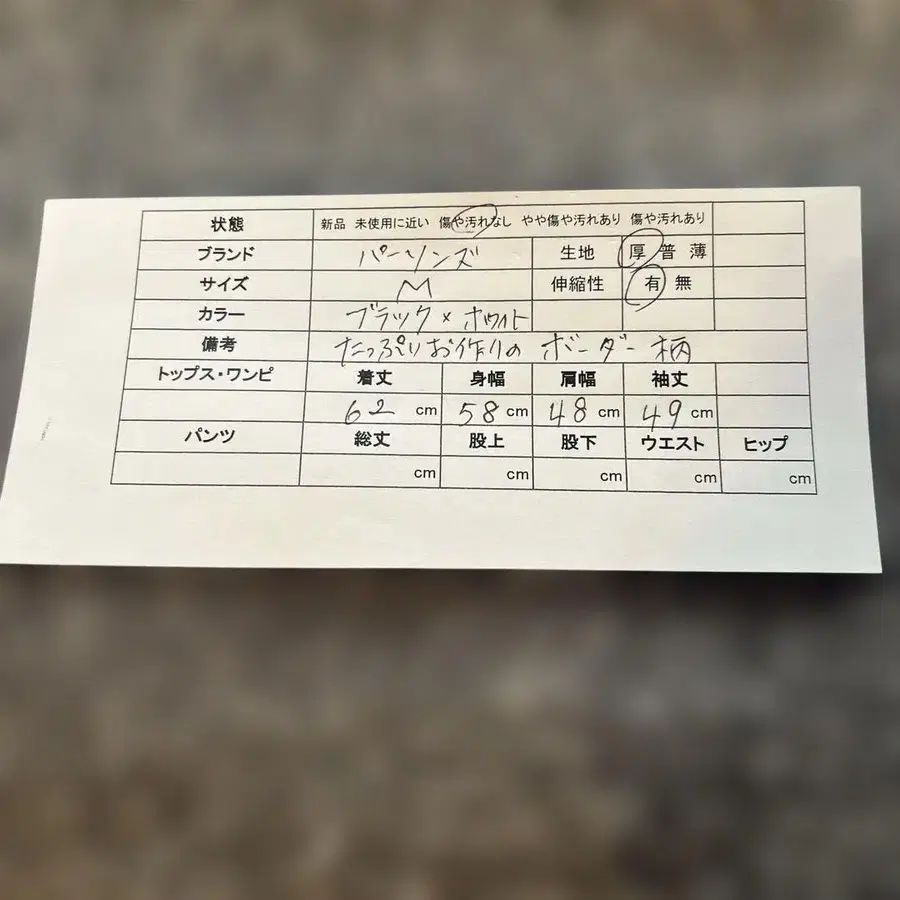 状態 新品 未使用に近い 傷や汚れなし やや傷や汚れあり 傷や汚れあり
ブランド パーソンズ 生地 厚 普 薄
サイズ M 伸縮性 有 無
カラー ブラック×ホワイト
備考 たっぷりお作りのボーダー柄
トップス・ワンピ 着丈 身幅 肩幅 袖丈
62 cm 58 cm 48 cm 49 cm
パンツ 総丈 股上 股下 ウエスト ヒップ
cm cm cm cm cm